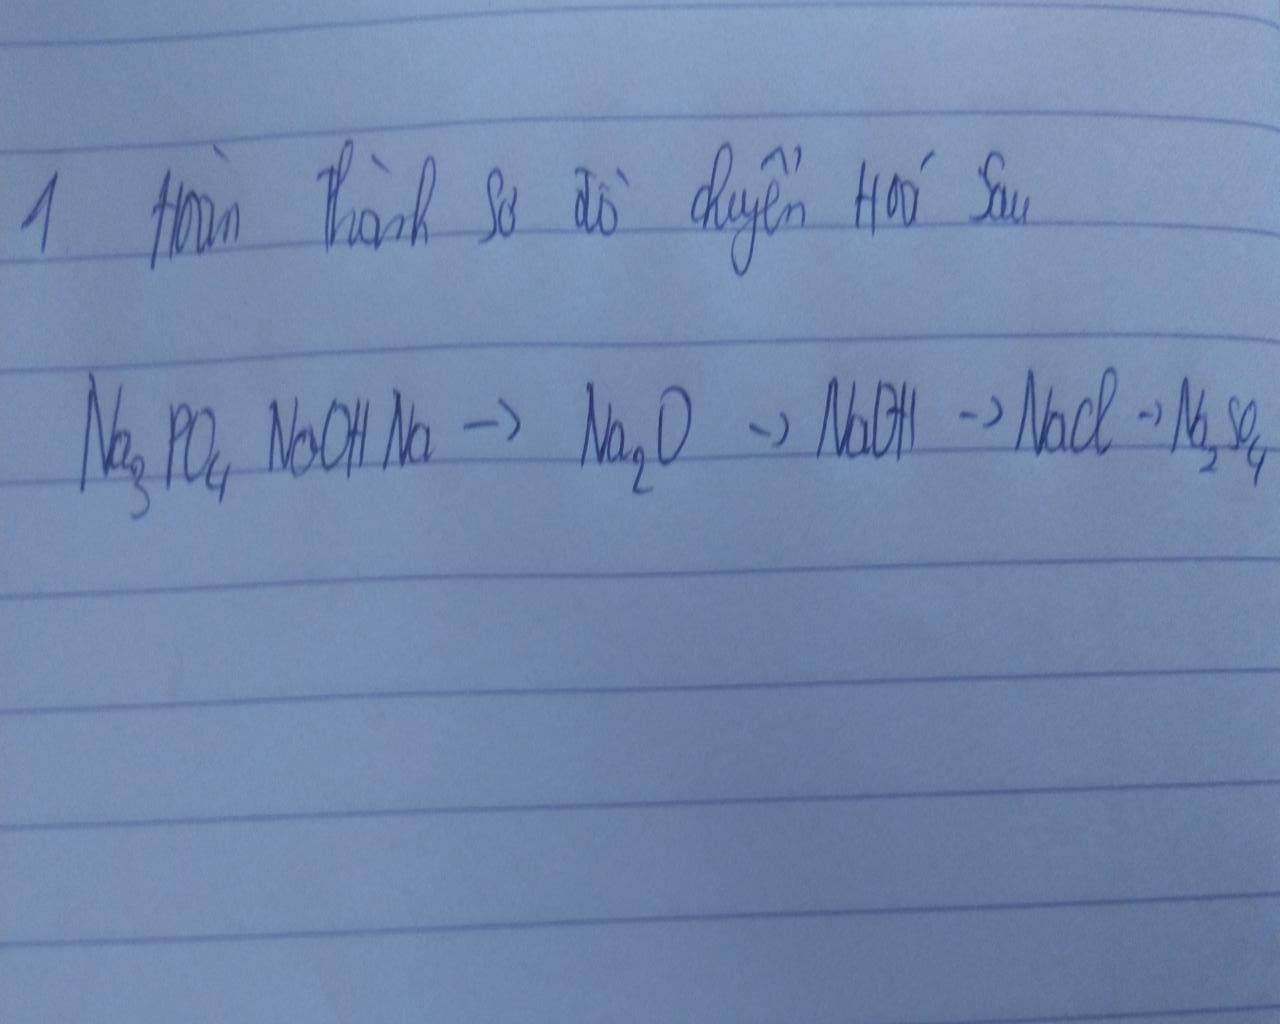 1 Hoàn thành sơ đồ chuyển Hoá sau
Na₃PO₄ NaOH Na → Na₂O → NaOH → NaCl → Na₂SO₄